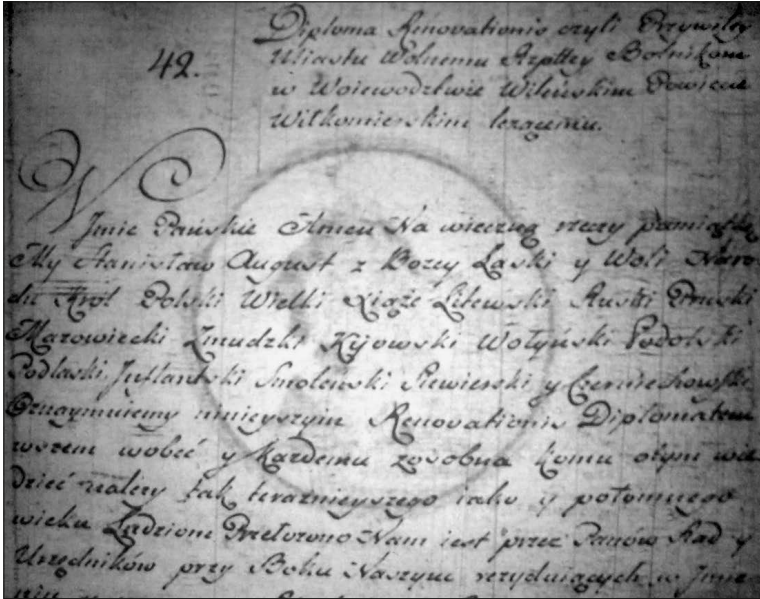 Diploma Renovationis czyli Przywiley
Miastu Wolnemu Rzpttey Bolnikom
42.
w Woiewodztwie Wileńskim Powiecie
Wiłkomierskim leżącemu.
W Jmie Pańskie Amen Na wieczną rzeczy pamiątkę
My Stanisław August z Bożey Łaski y Woli Naro-
du Krol Polski Wielki Xiąże Litewski Ruski Pruski
Mazowiecki Zmudzki Kijowski Wołyński Podolski
Podlaski Juflantski Smolenski Siewierski y Czerniechowski
Oznaymuiemy ninieyszym Renovationis Diplomatem
wszem wobec y każdemu zosobna komu otym wie-
dzieć należy tak teraznieyszego iako y potomnego
wieku Ludziom Przełożono Nam iest przez Panów Rad y
Urzędników przy Boku Naszym rezyduiących w Jmie-
niu